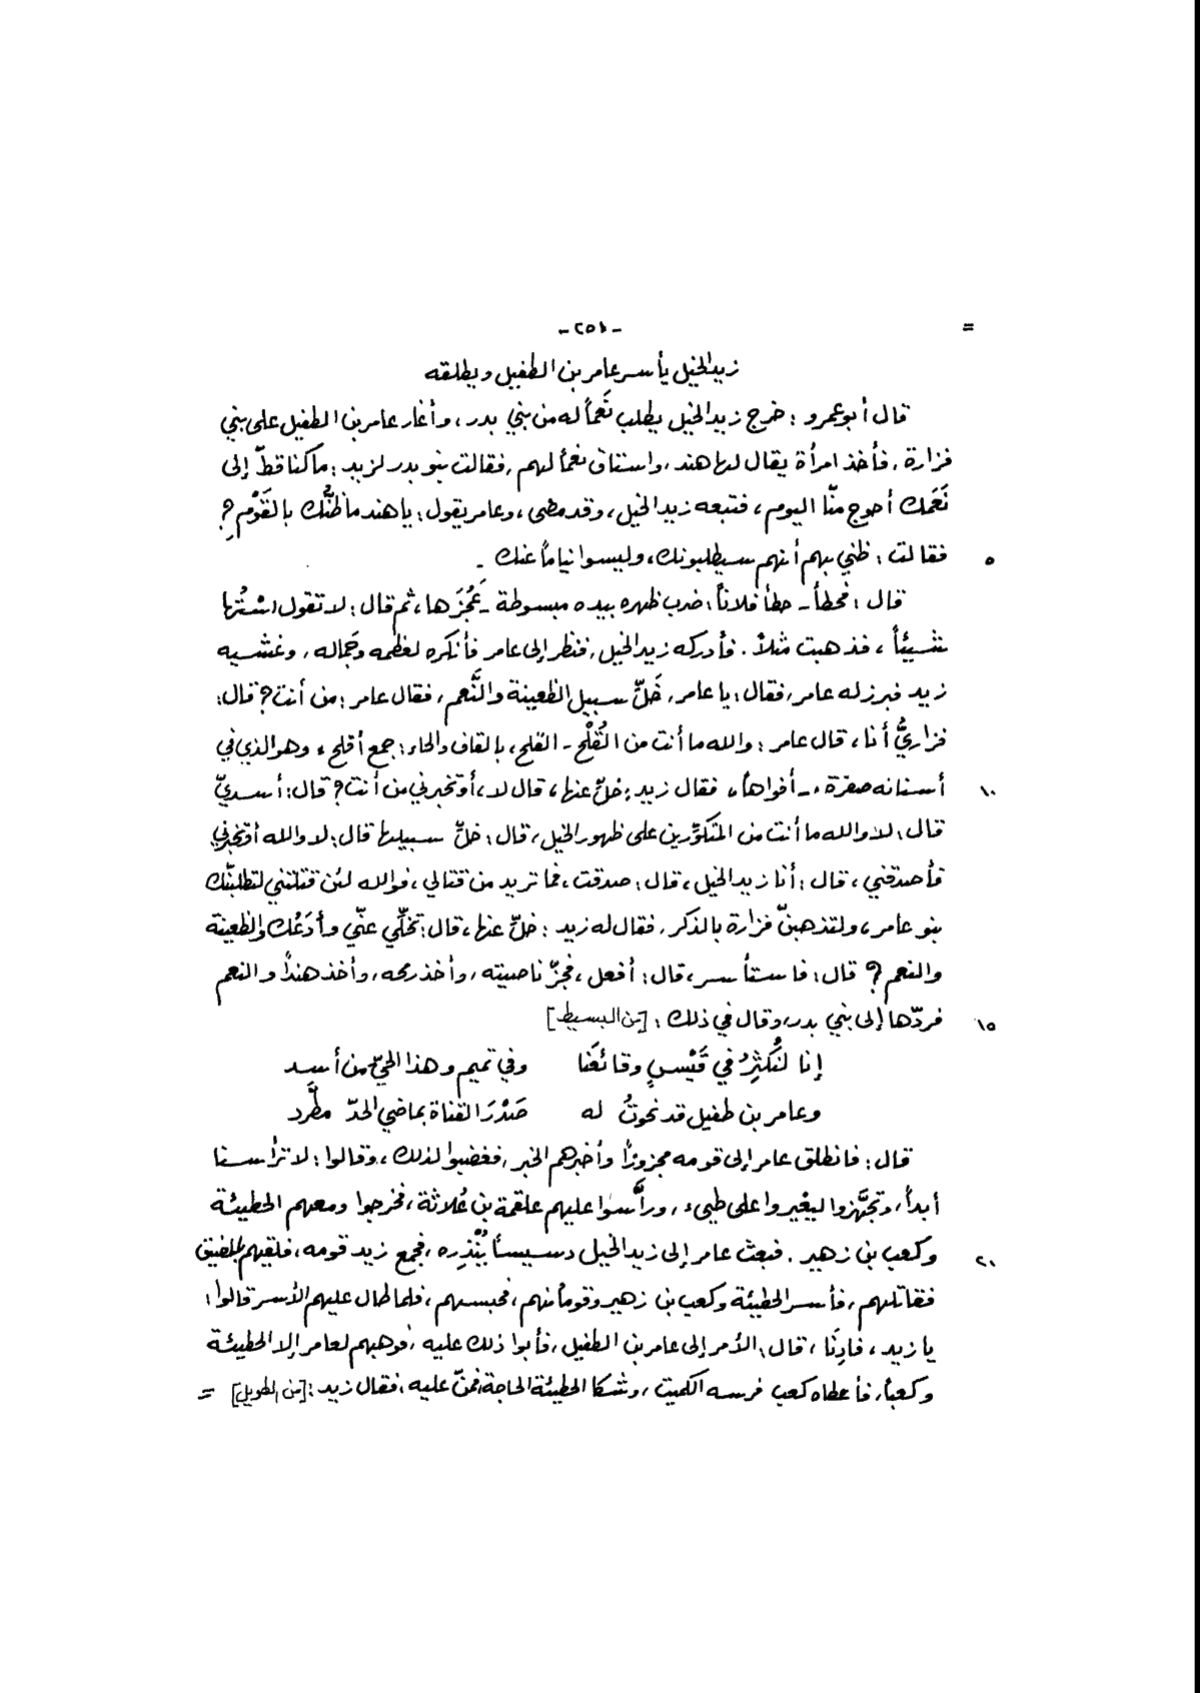 = -٢٥١-
زيد الخيل يأسر عامر بن الطفيل ويطلقه
قال أبو عمرو : خرج زيد الخيل يطلب نَعَماً له من بني بدر ، وأغار عامر بن الطفيل على بني
فزارة ، فأخذ امرأة يقال لها هند ، واستاق نعماً لهم ، فقالت بنو بدر لزيد : ما كنا قطّ إلى
نَعَمك أحوج منّا اليوم ، فتبعه زيد الخيل ، وقد مضى ، وعامر يقول : يا هند ما ظنُّك بالقَوْمِ ؟
٥ فقالت : ظني بهم أنهم سيطلبونك ، وليسوا نياماً عنك .
قال : فحطأ - حطأ فلاناً : ضرب ظهره بيده مبسوطة - عَجُزَها ، ثم قال : لا تقول اسْتُها
شيئاً ، فذهبت مثلاً . فأدركه زيد الخيل ، فنظر إلى عامر فأنكره لعظمه وجَماله ، وغشيه
زيد فبرز له عامر ، فقال : يا عامر ، خَلِّ سبيل الظعينة والنَّعم ، فقال عامر : من أنت ؟ قال :
فزاريٌّ أنا ، قال عامر : والله ما أنت من القُلْح - القلح ، بالقاف والحاء : جمع أقلح ، وهو الذي في
١٠ أسنانه صفرة ، - أفواهاً ، فقال زيد : خلِّ عنها ، قال لا ، أو تخبرني من أنت ؟ قال : أسديّ
قال : لا والله ما أنت من المتكوِّرين على ظهور الخيل ، قال : خلِّ سبيلها قال : لا والله أو تخبرني
فأصدقني ، قال : أنا زيد الخيل ، قال : صدقت ، فما تريد من قتالي ، فوالله لئن قتلتني لتطلبنّك
بنو عامر ، ولتذهبنّ فزارة بالذكر ، فقال له زيد : خلِّ عنها ، قال : تخلِّي عنّي وأدَعُك والظعينة
والنعم ؟ قال : فاستأسر ، قال : أفعل ، فجزّ ناصيته ، وأخذ رمحه ، وأخذ هنداً والنعم
١٥ فردّها إلى بني بدر ، وقال في ذلك : [من البسيط]
إنا لنُكثِرُ في قَيْسٍ وقائعَنا وفي تميم وهذا الحيّ من أسد
وعامر بن طفيل قد نحوتُ له صَدْرَ القناة بماضي الحدّ مطَّرد
قال : فانطلق عامر إلى قومه مجزوزاً وأخبرهم الخبر ، فغضبوا لذلك ، وقالوا : لا ترأسنا
أبداً ، وتجهّزوا ليغيروا على طيىء ، ورأَّسوا عليهم علقمة بن عُلاثة ، فخرجوا ومعهم الحطيئة
٢٠ وكعب بن زهير . فبعث عامر إلى زيد الخيل دسيساً يُنْذِره ، فجمع زيد قومه ، فلقيهم بالمضيق
فقاتلهم ، فأسر الحطيئة وكعب بن زهير وقوماً منهم ، فحبسهم ، فلما طال عليهم الأسر قالوا :
يا زيد ، فادِنَا ، قال : الأمر إلى عامر بن الطفيل ، فأبوا ذلك عليه ، فوهبهم لعامر إلا الحطيئة
وكعباً ، فأعطاه كعب فرسه الكميت ، وشكا الحطيئة الحاجة فمنّ عليه ، فقال زيد : [من الطويل] =